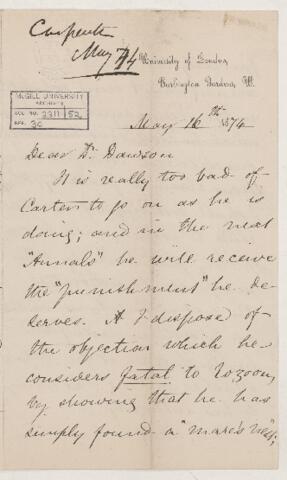 Carpenter
May /74
University of London,
Burlington Gardens, W.
McGILL UNIVERSITY
ARCHIVES
ACC. NO. 2211/52
REF. 30
May 16th 1874
Dear Dr. Dawson
It is really too bad of
Carter to go on as he is
doing; and in the next
"Annals" he will receive
the "punishment" he de-
serves. I dispose of
the objection which he
considers fatal to Eozoon,
by showing that he has
simply found a "mare's nest;